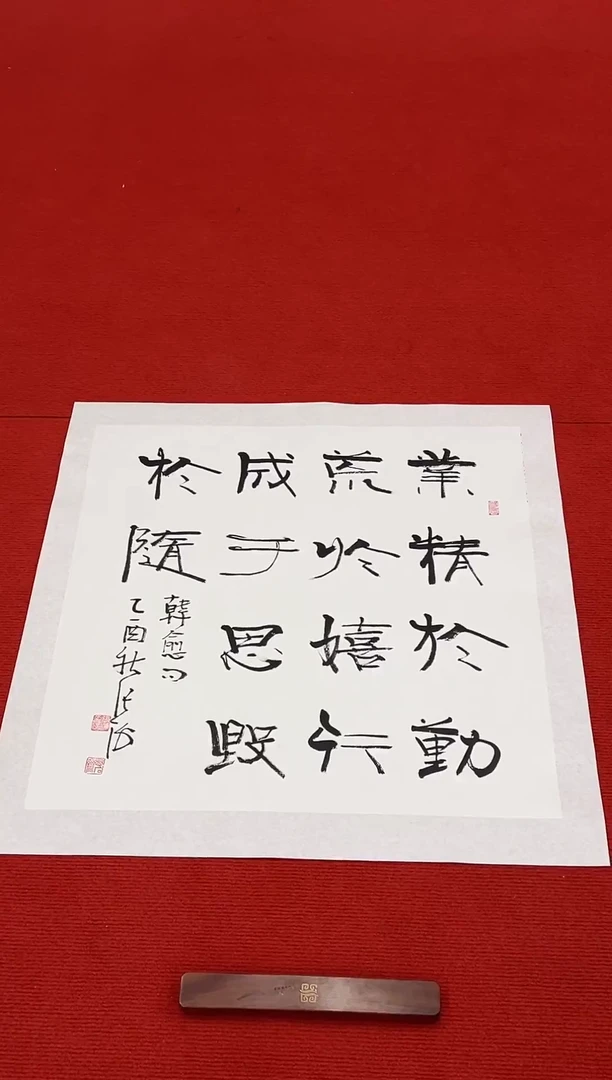 業精於勤
荒於嬉行
成于思毁
於隨
韓愈句
乙酉秋張海